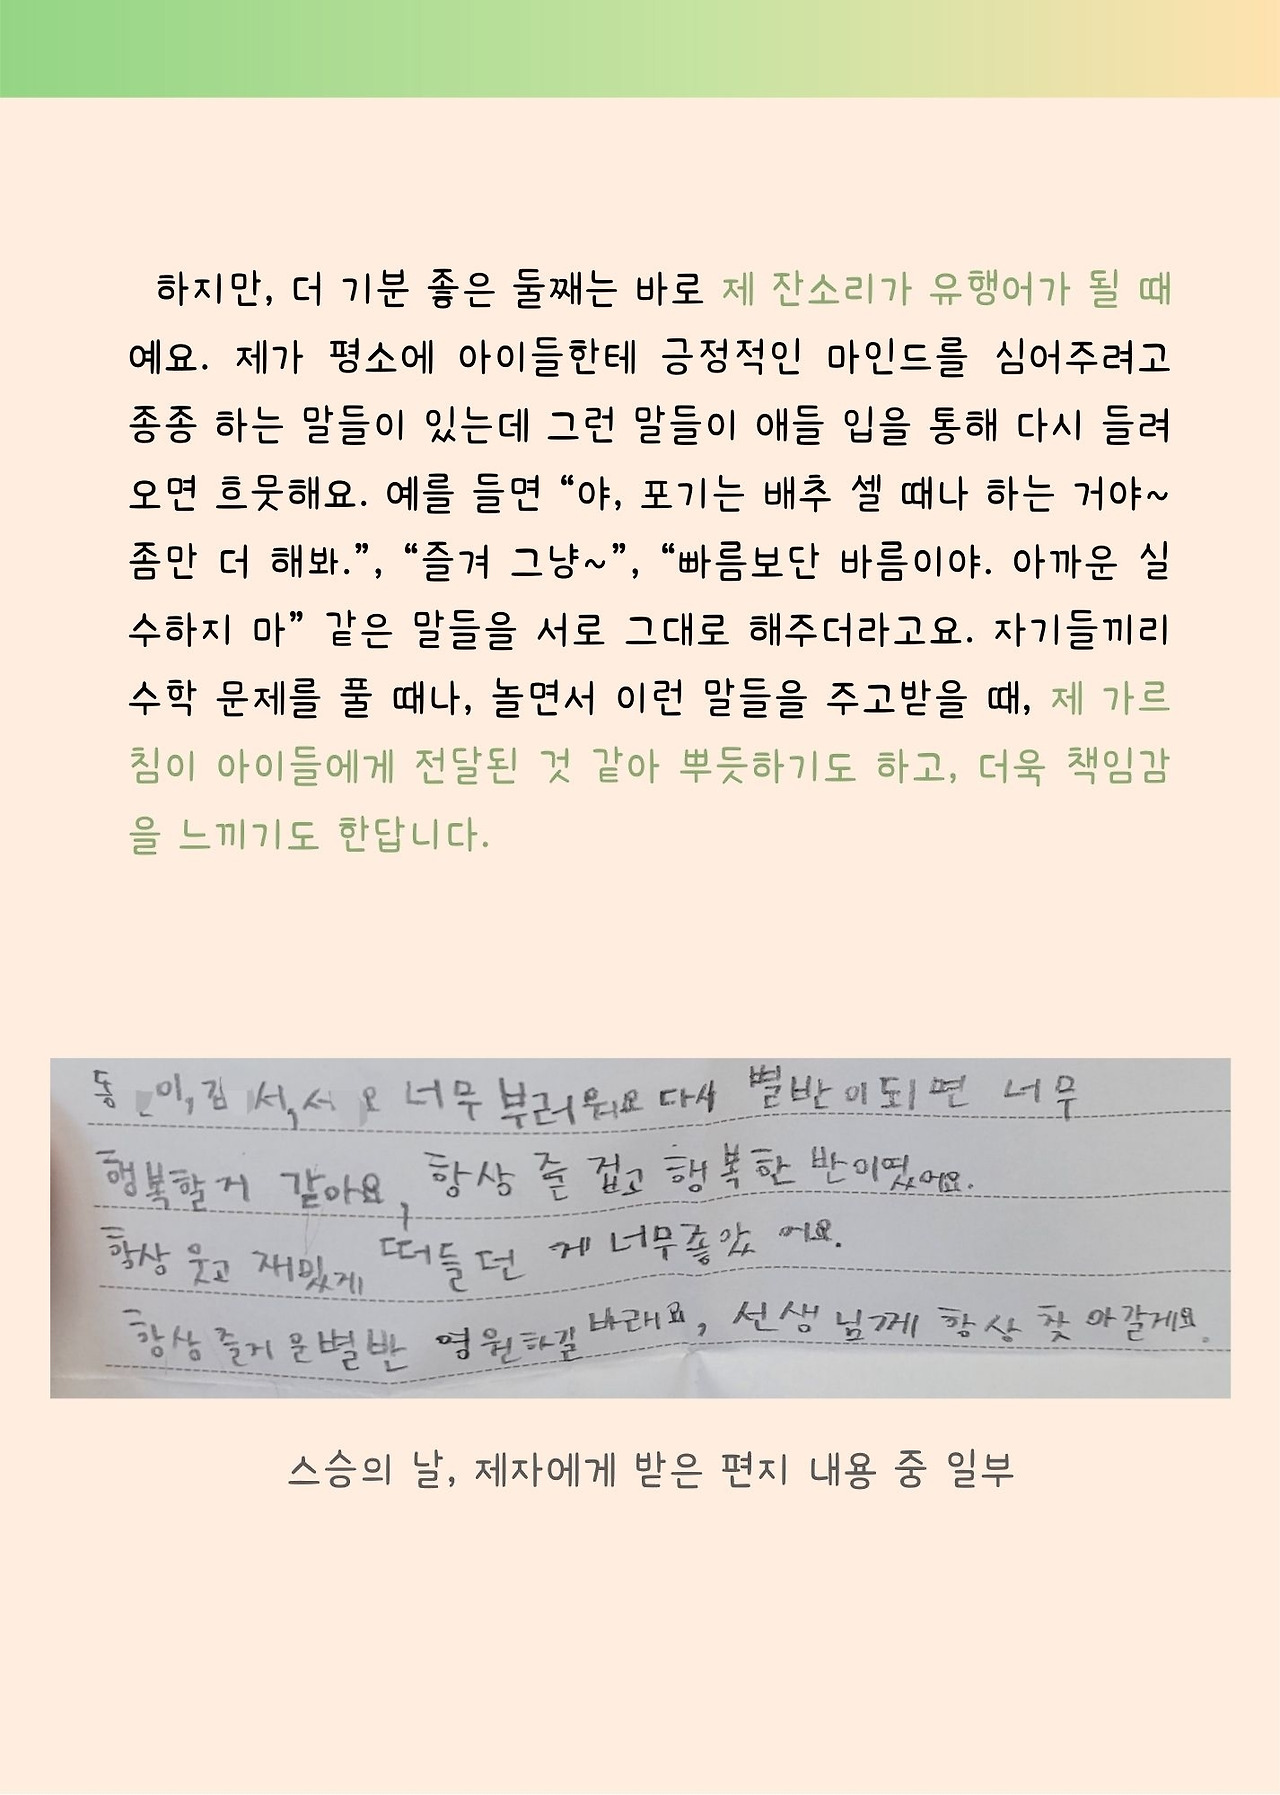 하지만, 더 기분 좋은 둘째는 바로 제 잔소리가 유행어가 될 때
예요. 제가 평소에 아이들한테 긍정적인 마인드를 심어주려고
종종 하는 말들이 있는데 그런 말들이 애들 입을 통해 다시 들려
오면 흐뭇해요. 예를 들면 “야, 포기는 배추 셀 때나 하는 거야~
좀만 더 해봐.”, “즐겨 그냥~”, “빠름보단 바름이야. 아까운 실
수하지 마” 같은 말들을 서로 그대로 해주더라고요. 자기들끼리
수학 문제를 풀 때나, 놀면서 이런 말들을 주고받을 때, 제 가르
침이 아이들에게 전달된 것 같아 뿌듯하기도 하고, 더욱 책임감
을 느끼기도 한답니다.
너무 부러워요 다시 별반이되면 너무
행복할거 같아요, 항상 즐겁고 행복한 반이였어요.
항상 웃고 재밌게 떠들던 게 너무좋았어요.
항상 즐거운별반 영원하길 바래요, 선생님께 항상 찾아갈게요.
스승의 날, 제자에게 받은 편지 내용 중 일부